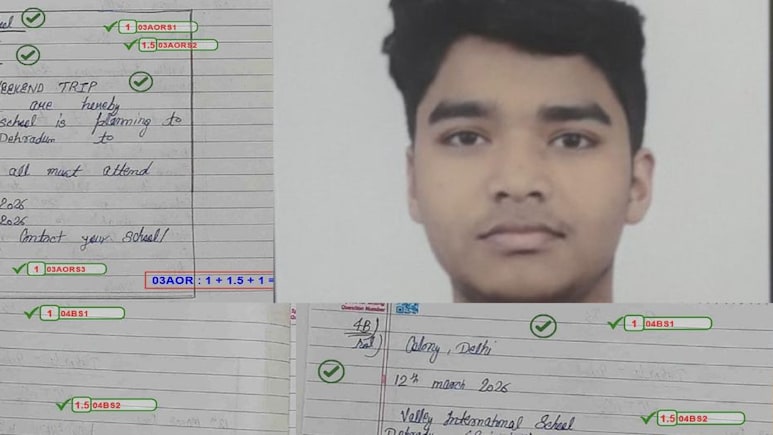 1 03AORS1
1.5 03AORS2
EEKEND TRIP
are hereby
school is planning to
Dehradun to
all must attend
2026
2026
Contact your School/
1 03AORS3
03AOR : 1 + 1.5 + 1 =
1 04BS1
1.5 04BS2
Question Number
4B)
Sol)
Colony, Delhi
1 04BS1
12th march 2026
Valley International School
1.5 04BS2
Dehradun